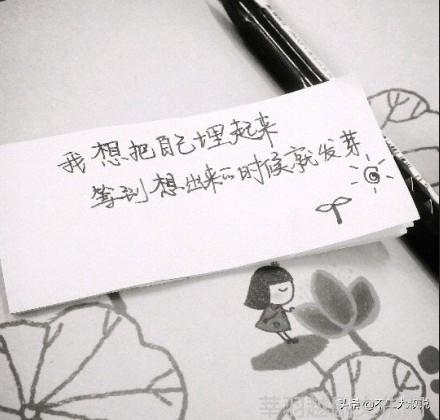 我想把自己埋起来
等到想出来的时候就发芽
头条@不二大叔说